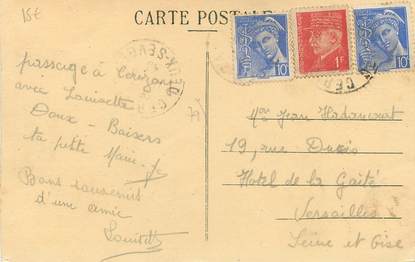 15€
CARTE POSTALE
10
1F
10
passage à
avec Louisette
Doux - Baisers
ta petite Marie-Jo
Bons souvenirs
d'une amie
Louisette
Mon Jean Hadancourt
19, rue Ducis
Hotel de la Gaîté
Versailles
Seine et Oise